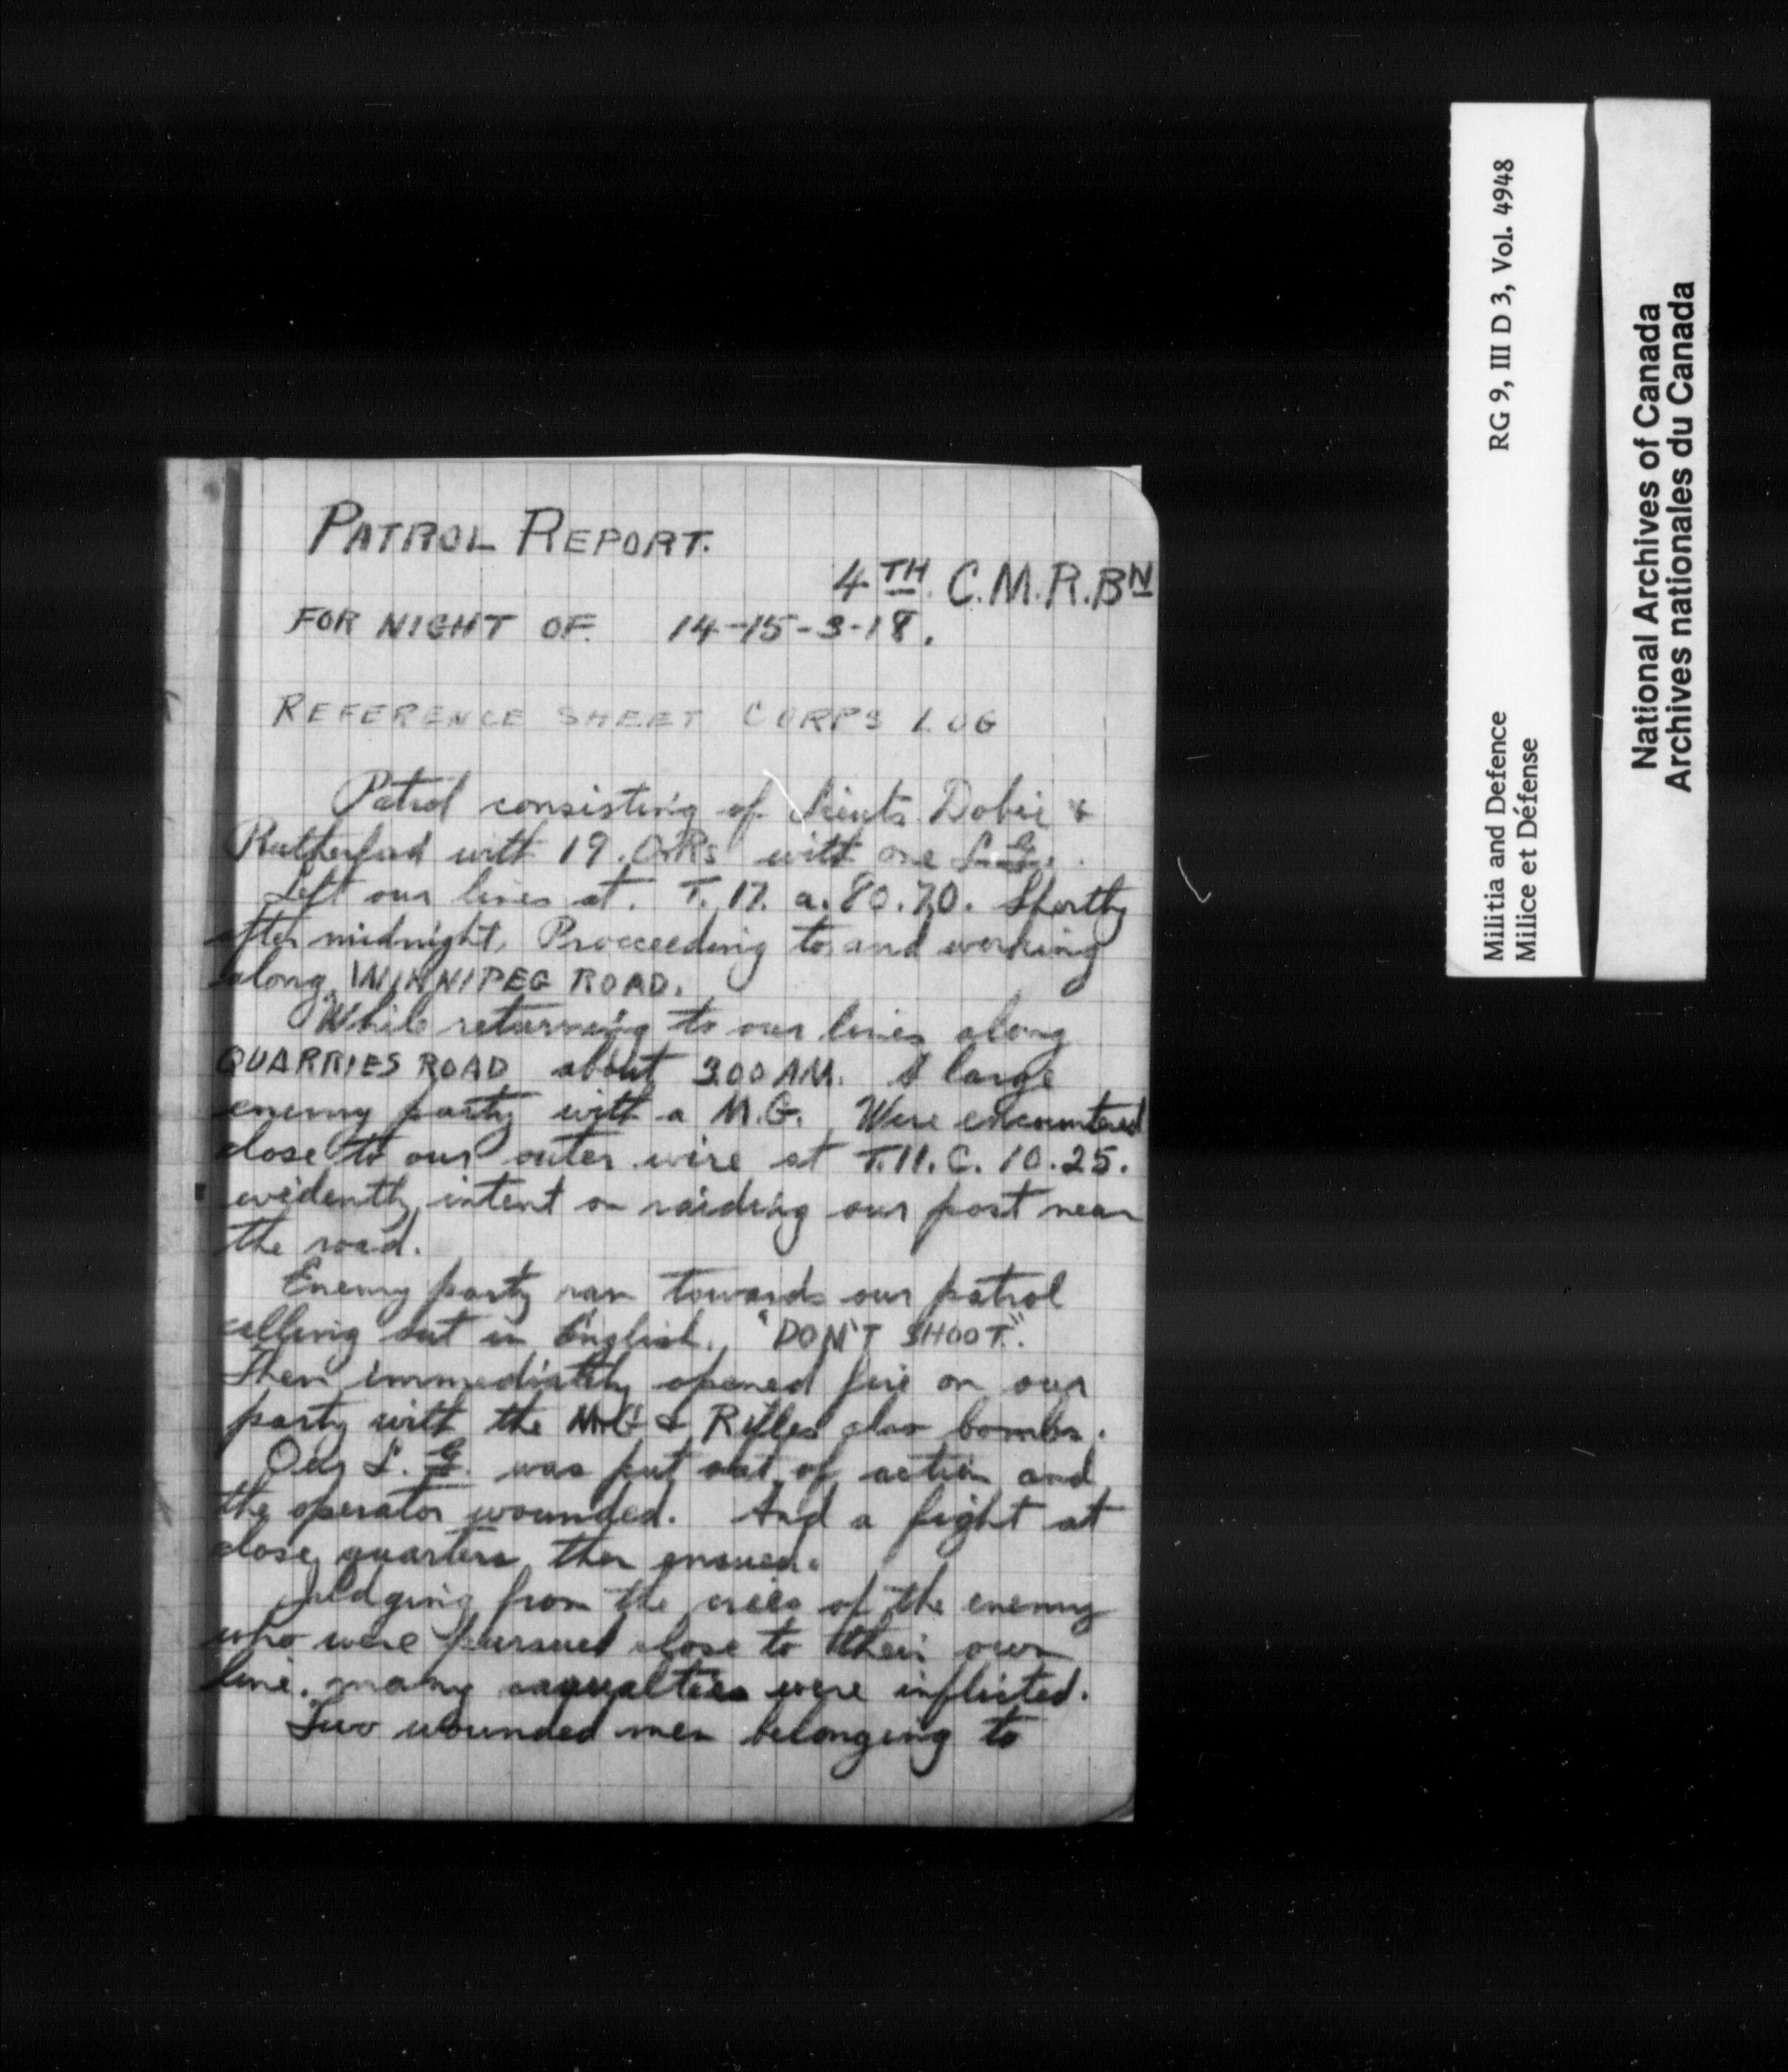 PATROL REPORT.
4TH. C.M.R.BN
FOR NIGHT OF. 14-15-3-18.
REFERENCE SHEET CORPS LOG
Patrol consisting of Lieuts. Dobie &
Rutherford with 19. O.Rs with one L.G.
Left our lines at. T.17. a.80.70. Shortly
after midnight, Procceeding to, and working
along, WINNIPEG ROAD.
While returning to our lines along
QUARRIES ROAD about 3.00 AM. A large
enemy party with a M.G. Were encountered
close to our outer wire at T.11.C.10.25.
evidently intent on raiding our post near
the road.
Enemy party ran towards our patrol
calling out in English, "DON'T SHOOT."
Then immediatly opened fire on our
party with the M.G & Rifles also bombs.
Our L.G. was put out of action and
the operator wounded. And a fight at
close quarters then ensued.
Judging from the cries of the enemy
who were pursued close to their own
line. many casualties were inflicted.
Two wounded men belonging to
Militia and Defence RG 9, III D 3, Vol. 4948
Milice et Défense
National Archives of Canada
Archives nationales du Canada